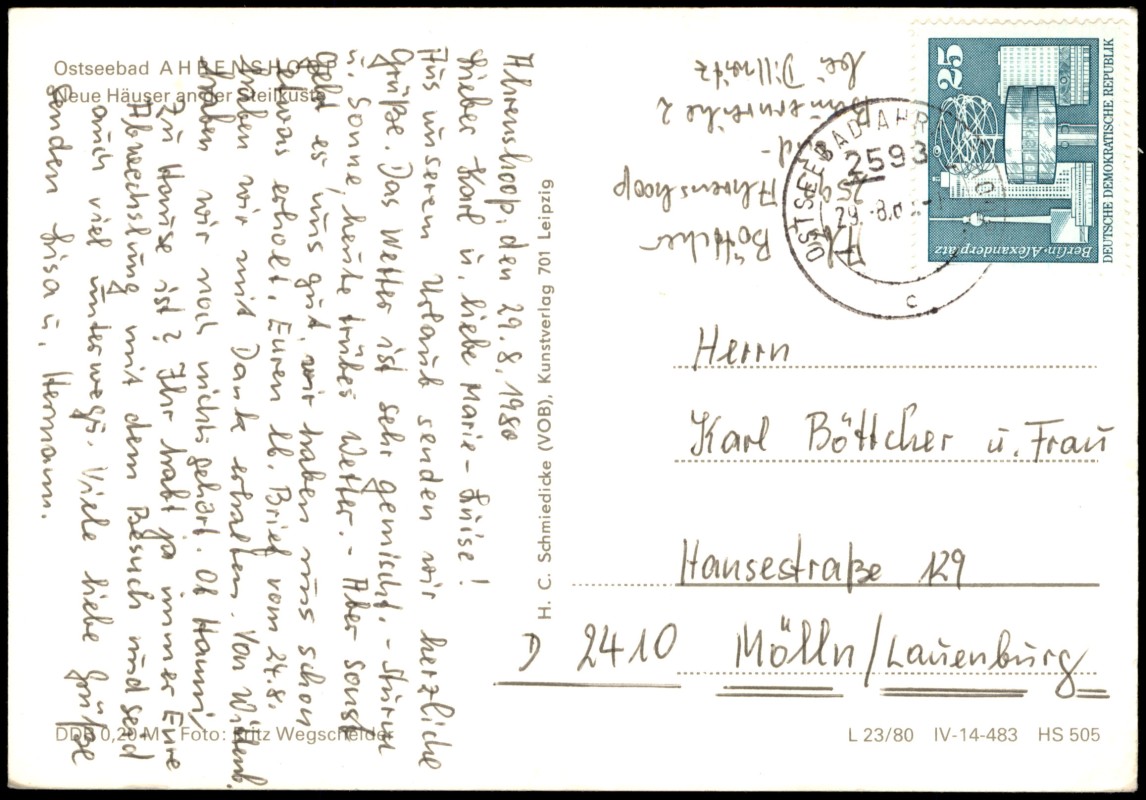 Ostseebad AHRENSHOOP
Neue Häuser an der Steilküste
Ahrenshoop, den 29.8.1980
Lieber Karl u. liebe Marie-Luise!
Aus unserem Urlaub senden wir herzliche
Grüße. Das Wetter ist sehr gemischt. - Sturm
u. Sonne, heute trübes Wetter. - Aber sonst
geht es uns gut, wir haben uns schon
etwas erholt. Euren lb. Brief vom 24.8.
haben wir mit Dank erhalten. Von Wittenb.
haben wir noch nichts gehört. Ob Hanni
zu Hause ist? Ihr habt ja immer Eure
Abwechslung mit dem Besuch und seid
auch viel unterwegs. Viele liebe Grüße
senden Lisa u. Hermann.
DDR 0,20 M Foto: Fritz Wegscheider
H. C. Schmiedicke (VOB), Kunstverlag 701 Leipzig
Böttcher
Ahrenshoop
bei
25
Berlin-Alexanderplatz
DEUTSCHE DEMOKRATISCHE REPUBLIK
OSTSEEBAD AHRENSHOOP
2593
29.-8.
c
Herrn
Karl Böttcher u. Frau
Hansestraße 129
D 2410 Mölln/Lauenburg
L 23/80 IV-14-483 HS 505